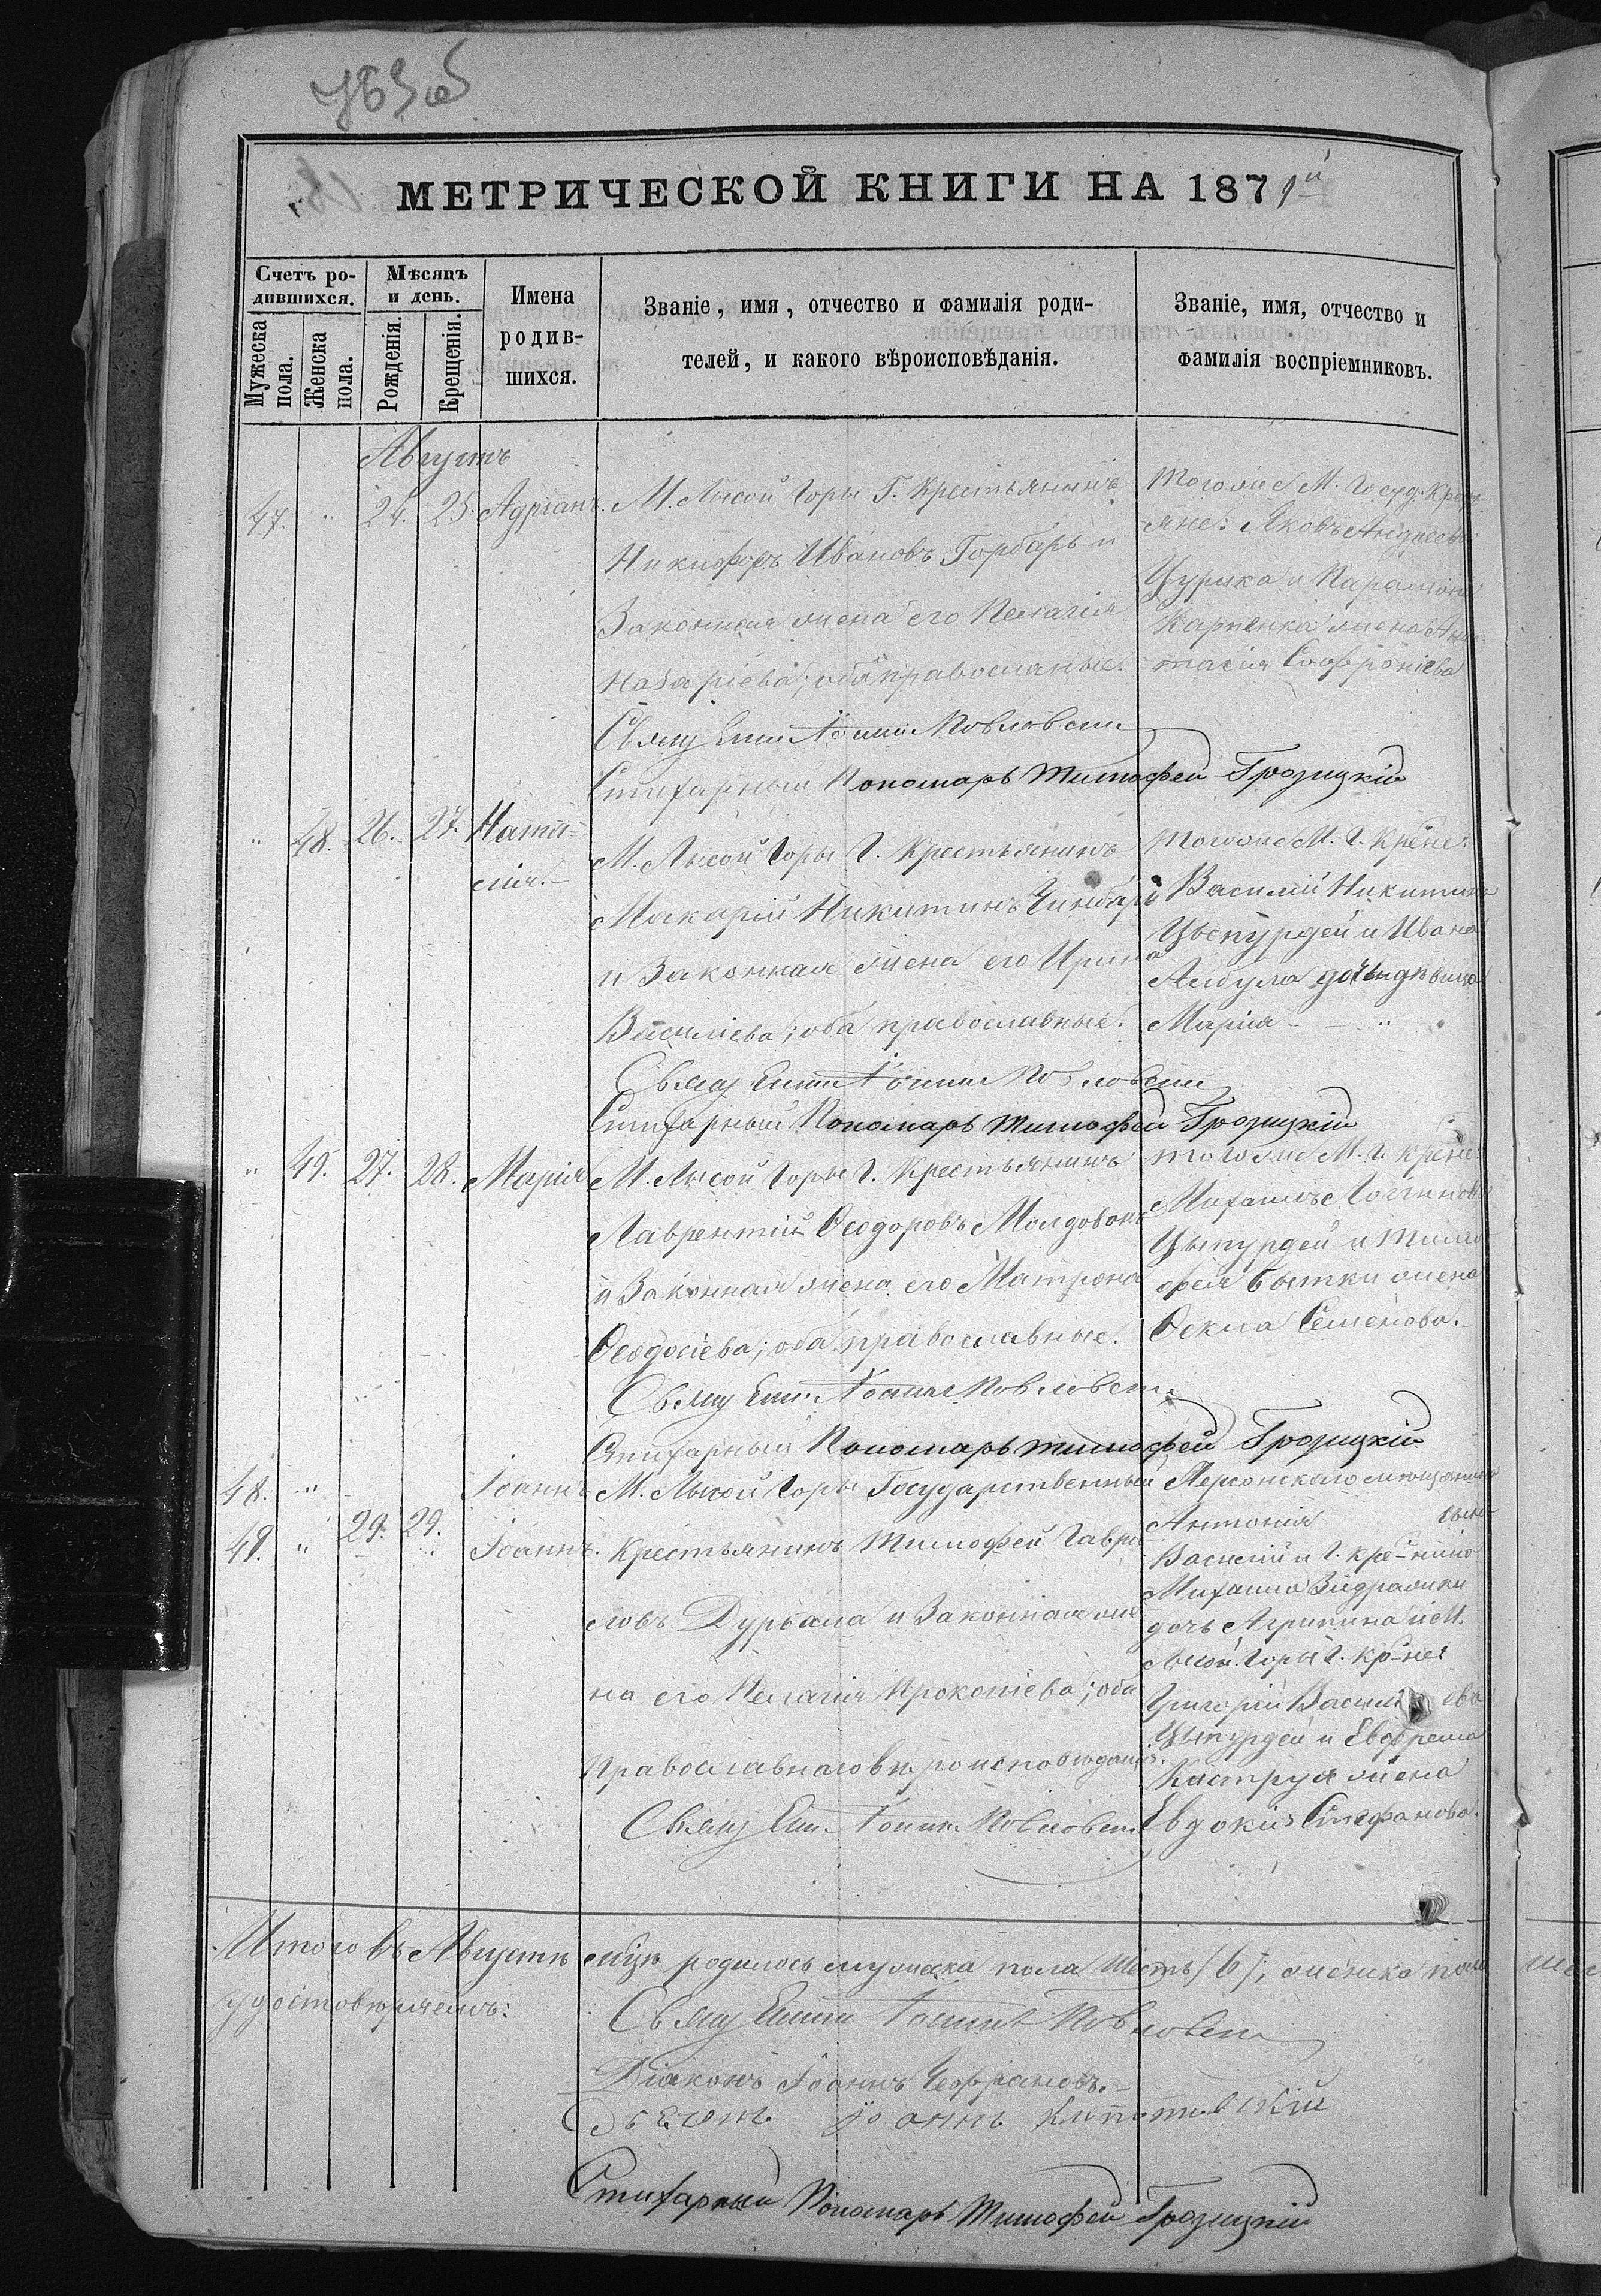 763 об
МЕТРИЧЕСКОЙ КНИГИ НА 1871й
Счетъ ро-
дившихся.
Мужеска пола.
Женска пола.
Мѣсяцъ
и день.
Рожденія.
Крещенія.
Имена
родив-
шихся.
Званіе, имя, отчество и фамилія роди-
телей, и какого вѣроисповѣданія.
Званіе, имя, отчество и
фамилія воспріемниковъ.
Августъ
47. " 24. 25. Адріанъ.
М. Лысой Горы Г. Крестьянинъ
Никифоръ Ивановъ Горбарь и
Законная жена его Пелагія
Назаріева; оба православные.
Тогоже М. Госуд. Кресть-
яне: Яковъ Андреевъ
Цурка и Парамона
Карпенка жена Ана-
тасія Софроніева
Свящ Іоаннъ Павловскій
Стихарный Пономарь Тимофей Грозицкій
" 48. 26. 27. Ната-
лія.
М. Лысой Горы Г. Крестьянинъ
Макарій Никитинъ Чинбарь
и Законная жена его Ирина
Василіева; оба православные.
Тогоже М. Г. Кр-не:
Василій Никитинъ
Цыпурдей и Ивана
дочь дѣвица
Марія "
Свящ Іоаннъ Павловскій
Стихарный Пономарь Тимофей Грозицкій
" 49. 27. 28. Марія
М. Лысой Горы Г. Крестьянинъ
Лаврентій Ѳеодоровъ Молдованъ
и Законная жена его Матрона
Ѳеодосіева; оба православные.
Тогоже М. Г. кр-не
Михаилъ Логгиновъ
Цыпурдей и Тимо-
фея Бытки жена
Ѳекла Семенова.
Свящ Іоаннъ Павловскій
Стихарный Пономарь Тимофей Грозицкій
48. " Іоаннъ
49. " 29. 29. Іоаннъ.
М. Лысой Горы Государственный
Крестьянинъ Тимофей Гаври-
ловъ Дурбала и Законная же-
на его Пелагія Прокопіева; оба
Православнаго вѣроисповѣданія.
Херсонскаго мѣщанина
Антонія сынъ
Василій и Г. кре-нина
Михаила
дочь Агрипина и М.
Лысой Горы Г. кр-не:
Григорій Васильевъ
Цыпурдей и Евфрема
Каструя жена
Евдокія Стефанова.
Свящ Іоаннъ Павловскій
Итого въ Августѣ мцѣ родилось мужеска пола шесть (6), женска пола
удостовѣряемъ:
Свящ Іоаннъ Павловскій
Діаконъ Іоаннъ
Іоаннъ
Стихарный Пономарь Тимофей Грозицкій